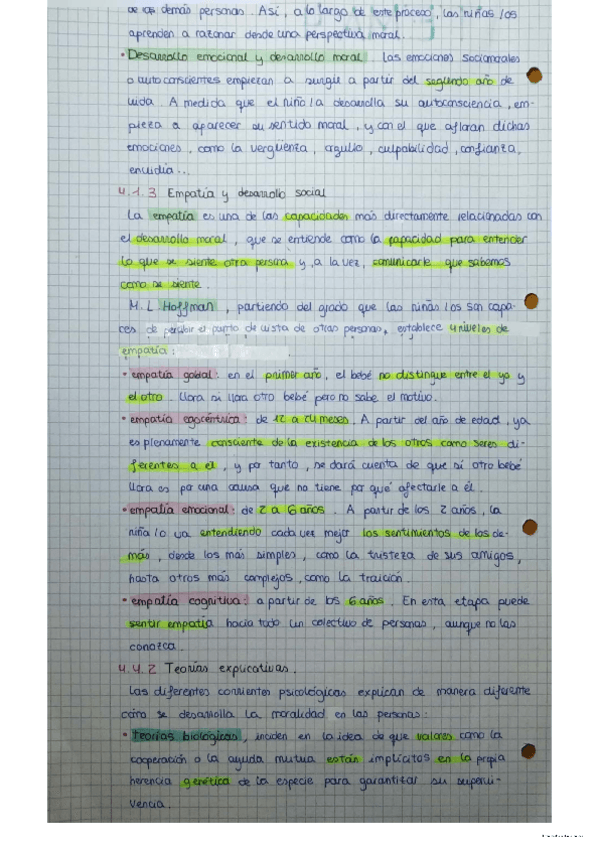 de las demás personas. Así, a lo largo de este proceso, las niñas/os
aprenden a razonar desde una perspectiva moral.
• Desarrollo emocional y desarrollo moral. Las emociones sociomorales
o autoconscientes empiezan a surgir a partir del segundo año de
vida. A medida que el niño/a desarrolla su autoconsciencia, em-
pieza a aparecer su sentido moral, y con el que afloran dichas
emociones, como la vergüenza, orgullo, culpabilidad, confianza,
envidia...
4.1.3 Empatía y desarrollo social
La empatía es una de las capacidades más directamente relacionadas con
el desarrollo moral, que se entiende como la capacidad para entender
lo que se siente otra persona y, a la vez, comunicarle que sabemos
como se siente.
M.L. Hoffman, partiendo del grado que las niñas/os son capa-
ces de percibir el punto de vista de otras personas, establece 4 niveles de
empatía:
• empatía global: en el primer año, el bebé no distingue entre el yo y
el otro. Llora si llora otro bebé pero no sabe el motivo.
• empatía egocéntrica: de 12 a 24 meses. A partir del año de edad, ya
es plenamente consciente de la existencia de los otros como seres di-
ferentes a el, y por tanto, se dará cuenta de que si otro bebé
llora es por una causa que no tiene por qué afectarle a él.
• empatía emocional: de 2 a 6 años. A partir de los 2 años, la
niña/o va entendiendo cada vez mejor los sentimientos de los de-
más, desde los más simples, como la tristeza de sus amigos,
hasta otros más complejos, como la traición.
• empatía cognitiva: a partir de los 6 años. En esta etapa puede
sentir empatía hacia todo un colectivo de personas, aunque no las
conozca.
4.4.2 Teorías explicativas.
Las diferentes corrientes psicológicas explican de manera diferente
cómo se desarrolla la moralidad en las personas:
• Teorías biológicas, inciden en la idea de que valores como la
cooperación o la ayuda mutua están implícitos en la propia
herencia genética de la especie para garantizar su supervi-
vencia.